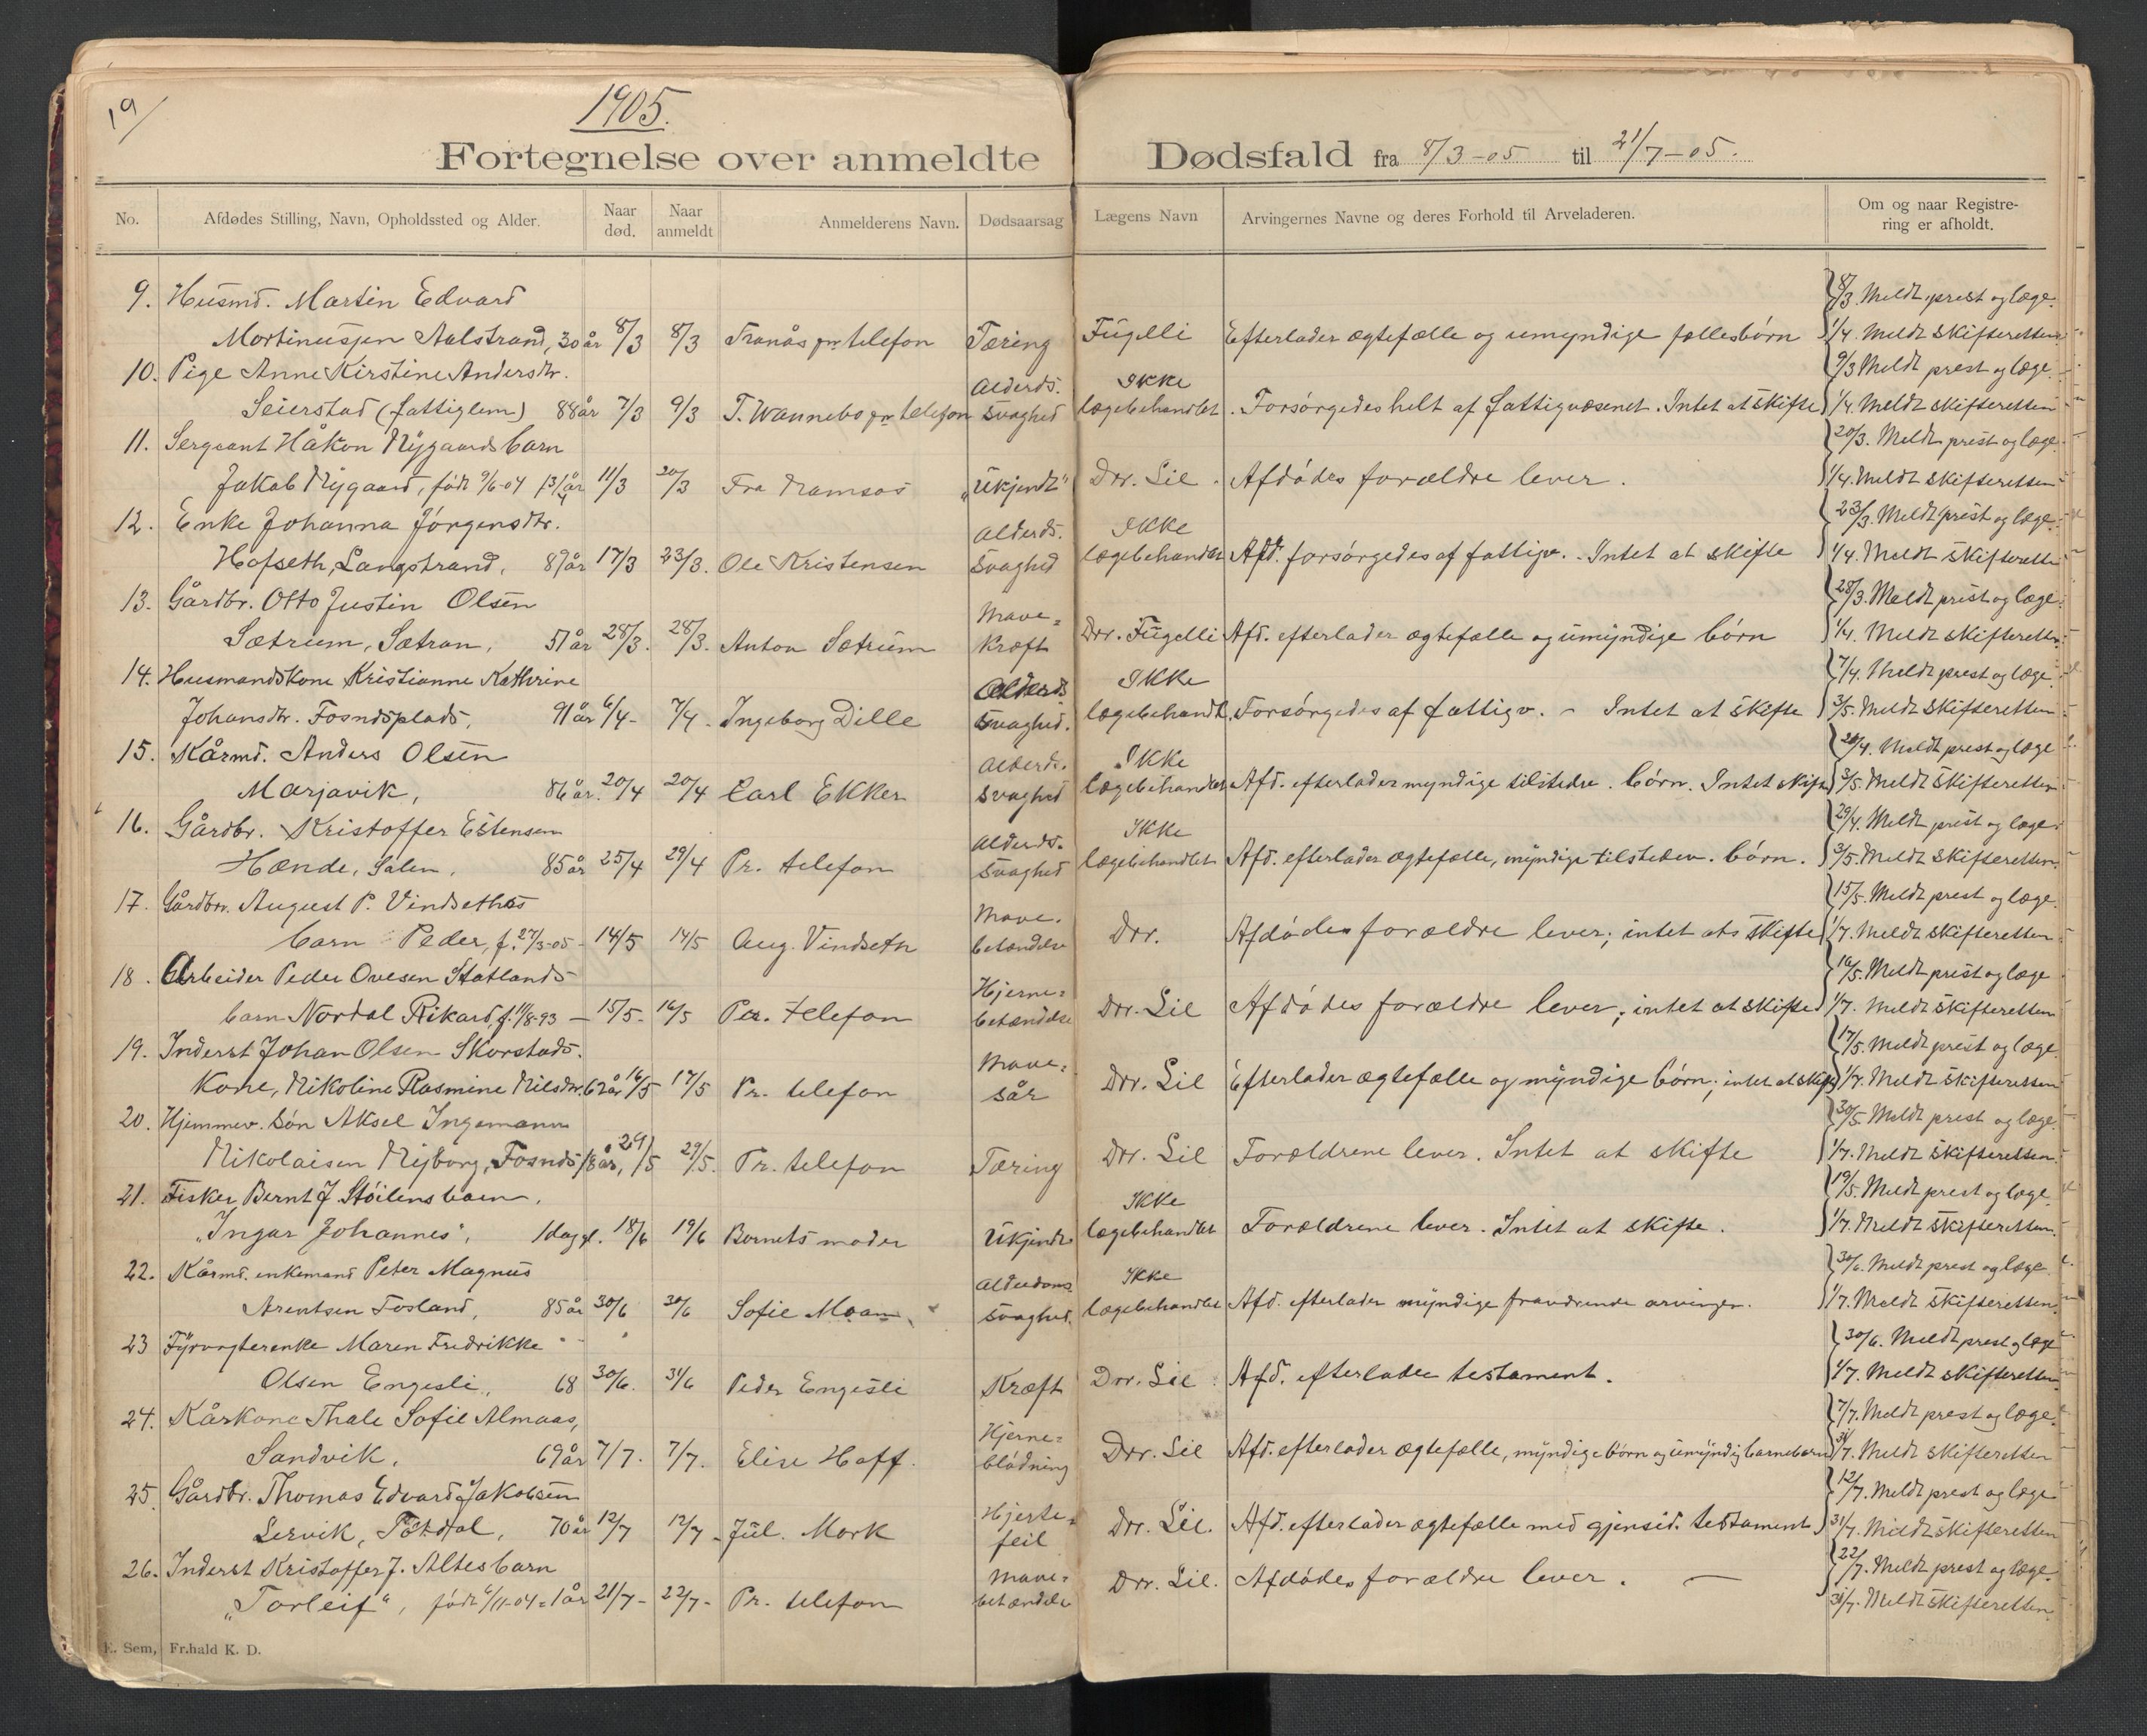 19/
1905.
Fortegnelse over anmeldte Dødsfald fra 8/3-05 til 21/7-05.
No. Afdødes Stilling, Navn, Opholdssted og Alder. Naar død. Naar anmeldt Anmelderens Navn. Dødsaarsag Lægens Navn Arvingernes Navne og deres Forhold til Arveladeren. Om og naar Registrering er afholdt.
9. Husmd. Martin Edvard 8/3. Meldt prest og læge.
Mortinussen Aalstrand, 30 år 8/3 8/3 Tranås pr telefon Tæring Fugelli Efterlader ægtefælle og umyndige fællesbörn 1/4. Meldt skifteretten
10. Pige Anne Kirstine Andersdtr. Alderds. Ikke 9/3 Meldt prest og læge.
Seierstad (fattiglem) 88 år 7/3 9/3 T. Wannebo pr telefon svaghed lægebehandlet. Forsörgedes helt af fattigvæsenet. Intet at skifte 1/4. Meldt skifteretten
11. Sergeant Håkon Nygaards barn 20/3. Meldt prest og læge.
Jakob Nygaard, födt 9/6-04 11/3 20/3 Fra Namsos „Ukjendt" Dr. Lie. Afdödes forældre lever. 1/4. Meldt skifteretten
12. Enke Johanna Jörgensdtr. Alderds. Ikke 23/3. Meldt prest og læge.
Hofseth, Langstrand, 87 år 17/3 23/3. Ole Kristensen svaghed lægebehandlet Afd. forsörgedes af fattigv. - Intet at skifte 1/4. Meldt skifterette
13. Gårdbr. Otto Justin Olsen Mave= 28/3. Meldt prest og læge.
Sætrum, Sætran, 57 år 28/3. 28/3. Anton Sætrum kræft Dr. Fugelli Afd. efterlader ægtefælle og umyndige börn 1/4. Meldt skifteretten.
14. Husmandskone Kristianne Kathrine Alderds Ikke 7/4. Meldt prest og læge.
Johansdtr. Fosndsplads, 91 år 6/4- 7/4. Ingeborg Dille svaghed. lægebehandl. Forsörgedes af fattigv. - Intet at skifte 3/5. Meldt skifteretten
15. Kårmd. Anders Olsen Alderds. Ikke 20/4. Meldt prest og læge
Marjavik, 86 år. 20/4 20/4 Carl Ekker svaghed lægebehandlet Afd. efterlader myndige tilstedv. börn. Intet skifte 3/5. Meldt skifteretten
16. Gårdbr. Kristoffer Estensen Alderds. Ikke 29/4. Meldt prest og læge.
Hænde, Salen, 85 år 25/4 29/4 Pr. telefon svaghed lægebehandlet Afd. efterlader ægtefælle, myndige tilstedev. börn. 3/5. Meldt skifteretten.
17. Gårdbr. August P. Vindseths Mave. 15/5. Meldt prest og læge.
barn Peder, f. 27/3-05- 14/5 14/5 Aug. Vindseth betændelse Dr. Afdödes forældre lever; intet at skifte 1/7. Meldt skifteretten.
18. Arbeider Peder Ovesen Statlands Hjerne= 16/5. Meldt prest og læge
barn Nordal Rikard, f. 11/8-93 - 15/5. 16/5 Per. telefon betændelse Dr. Lie Afdödes forældre lever; intet at skifte 1/7. Meldt skifteretten
19. Inderst Johan Olsen Skorstads. Mave= 17/5. Meldt prest og læge.
kone, Nikoline Rasmine Nilsdtr. 62 år 16/5 17/5 Pr. telefon sår Dr. Lie Efterlader ægtefælle og myndige börn; intet at skifte 1/7. Meldt skifteretten
20. Hjemmev. sön Aksel Ingemann 30/5. Meldt prest og læge.
Nikolaisen Nyborg, Fosnds 18 år, 29/5 29/5. Pr. telefon Tæring Dr. Lie Forældrene lever. Intet at skifte 1/7. Meldt skifteretten.
21. Fisker Bernt J. Stöilens barn. Ikke 19/5. Meldt prest og læge.
„Ingar Johannes", 1 dag gl. 18/6 19/6 Barnets moder Ukjendt lægebehandlet Forældrene lever. Intet at skifte. 1/7. Meldt skifteretten.
22. Kårmd. enkemand Peter Magnus Alderdoms Ikke 30/6. Meldt prest og læge.
Arentsen Fosland, 85 år 30/6 30/6 Sofie Moam svaghed. lægebehandlet Afd. efterlader myndige arvinger. 1/7. Meldt skifteretten.
23 Fyrvogterenke Maren Fredrikke 30/6. Meldt prest og læge
Olsen Engesli, 68 30/6. 31/6 Peder Engesli Kræft Dr. Lie Afd. efterlader testament. 1/7. Meldt skifteretten.
24. Kårkone Thale Sofie Almaas, Hjerne= 7/7. Meldt prest og læge.
Sandvik. 69 år 7/7. 7/7. Elise Hoff. blödning Dr. Lie Afd. efterlader ægtefælle, myndige börn og umyndig barnebarn 31/7. Meldt skifteretten
25. Gårdbr. Thomas Edvard Jakobsen Hjerte= 12/7. Meldt prest og læge
Lervik, 70 år 12/7 12/7- Jul. Mork feil Dr. Lie. Afd. efterlader ægtefælle med gjensid. testament 31/7. Meldt skifteretten
26. Inderst Kristoffer J. Altes barn Mave= 22/7. Meldt prest og læge.
„Torleif", födt 6/11-04 = 1 år 21/7- 22/7- Pr. telefon betændelse Dr. Lie. Afdödes forældre lever. — 31/7. Meldt skifteretten.
E. Sem, Fr.hald K. D.